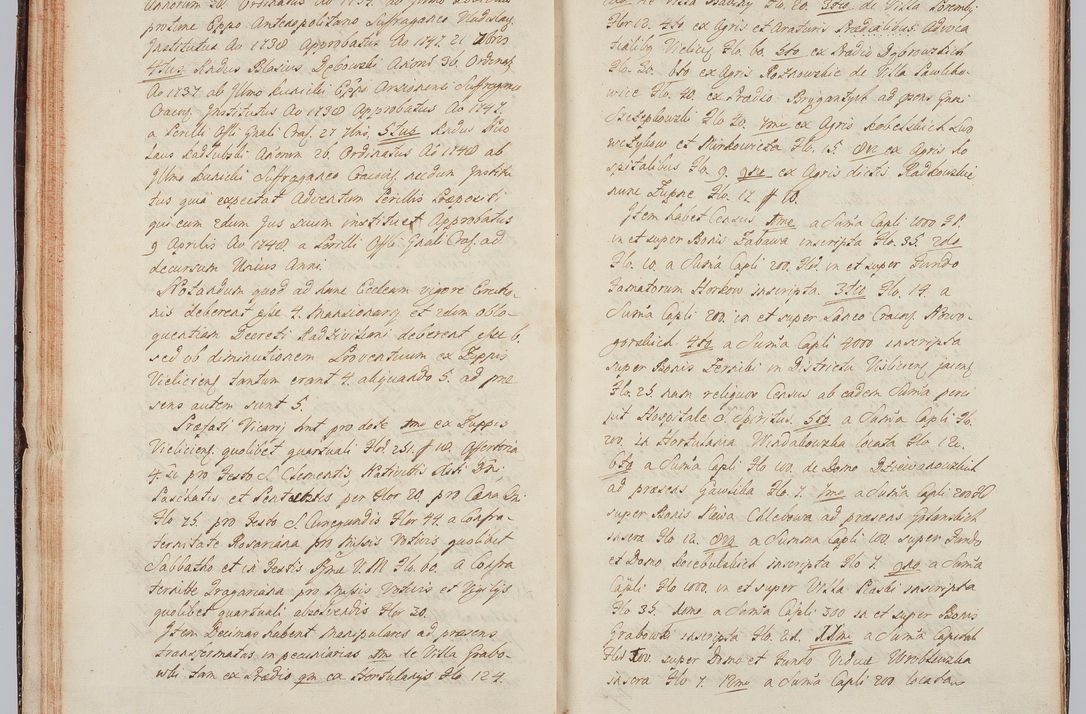 Annorum 30. Ordinatus Ao 1737. ab Jllmo
protune Eppo Antenopolitano Suffraganeo Vladislav.
Jnstitutus Ao 1738 Approbatus Ao 1747. 21 Xbris
4tus Rndus Blasius Dębowski Annor. 36. Ordinat.
Ao 1737. ab Jllmo Kunicki Eppo Arsionensi Suffragneo
Cracov. Jnstitutus Ao 1738 Approbatus Ao 1747.
a Perilli Offli Gnali Crac. 27 Xbris, 5tus Rndus Nico
laus Radłubski Anorum 26. Ordinatus Ao 1748 ab
Jllmo Kunicki Suffraganeo Cracovi. necdum Jnstitu
tus quia expectat Adventum Perillis Prepositi
qui eum edum Jus suum instituet Approbatus
9 Aprilis Ao 1748. a Perilli Offli Gnali Crac. ad
decursum Unius Anni.
Notandum quod ad hanc Eccleam vigore Erectio-
nis deberent esse 4. Mansionary et edum oblo-
quentiam Decreti Radziviliani deberent esse 6.
sed ob diminutionem Proventuum ex Zuppis
Vieliciens. tantum erant 4. aliquando 5. ad præ
sens autem sunt 5.
Præfati Vicarii hnt pro dote 1mo ex Zuppis
Vieliciens. quolibet quartuali Flor 251. # 18. Offertoria
4. Si pro Festo S. Clementis, Nativittis Dsti Dni,
Paschatis et Pentecostis per Flor 20. pro Cæna Dni
Flo 75. pro Festo S. Cunegundis Flor 44. a Confra-
ternitate Rosariana pro Missis Votivis quolibet
Sabbatho et in Festis Bmæ V. M. Flo. 60. a Confra
ternitte Dragoriana pro Missis Votivis et Vigilijs
quolibet quartuali absolvendis Flor 20.
Jtem Decimas habent Manipulares ad præsens
transformatas in pecuniarias 1mo de Villa Grabo-
wki tam ex Prædio qm ex Hortulanijs Flo 124.
Flor 12. 4to ex Agris et Araturis Prædialibus Advoca
tialibq Velicij Flo. 60. 5to ex Prædio Dębrowskich
Flo. 30. 6to ex Agris Roznowskie de Villa Pawliko-
wice Flo. 40. ex Prædio Brygantych ad præns Gnri
Szczepkowski Flo 20. 7mo ex Agris Kobelskich Lud
wczykow et Mirkowicza Flo. 15. 8vo ex Agris Ho
spitalibus Flo. 9. 9no ex Agris dictis Radkowskie
nunc Zupne Flo. 12 # 18.
Jtem habet Census 1mo a Suma Capli 1000 Fl.
in et super Bonis Zabawa inscripta Flo. 35. 2do
Flo. 10. a Suma Capli 200. Flo. in et super Fundo
Famatorum Horkow inscripta. 3tio Flo. 14. a
Suma Capli 200. in et super Laneo Cracov. Nowo-
gorskich 4to a Suma Capli 4000 inscripta
super Bonis Fernihi in Districtu Visliciens. jacens
Flo. 25. nam reliquos Census ab eadem Suma perci
pit Hospitale S. Spiritus. 5to a Suma Capli Flo.
200. in Hortulania Windakowska locata Flo 12.
6to a Suma Capli Flo 100. de Domo Dziewanowskich
ad præsens Gawlika Flo. 7. 7mo a Suma Capli 200 Flo
super Bonis Niwa Chlebowa ad præsens Gdanskich
inscra Flo 12. 8vo a Summa Capli 100. super Fundo
et Domo Kociebulskich inscripta Flo 7. 9no a Suma
Capli Flo 1000. in et super Villa Piaski inscripta
Flo 35. 10mo a Suma Capli 300 in et super Bonis
Grabowki inscripta Flo. 21. XImo a Suma Capitali
Flo 100. super Domo et Fundo Viduæ Wroblewska
inscra Flo 7. 12mo a Suma Capli 200 locata